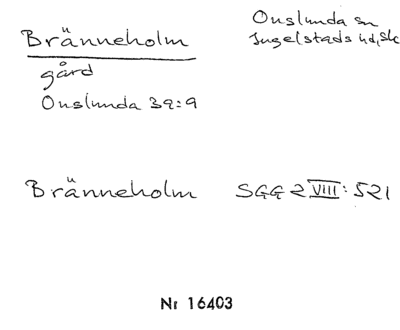 Bränneholm
Onslunda sn
Ingelstads hd, Sk
gård
Onslunda 39:9
Bränneholm SGG 2 VIII: 521
Nr 16403